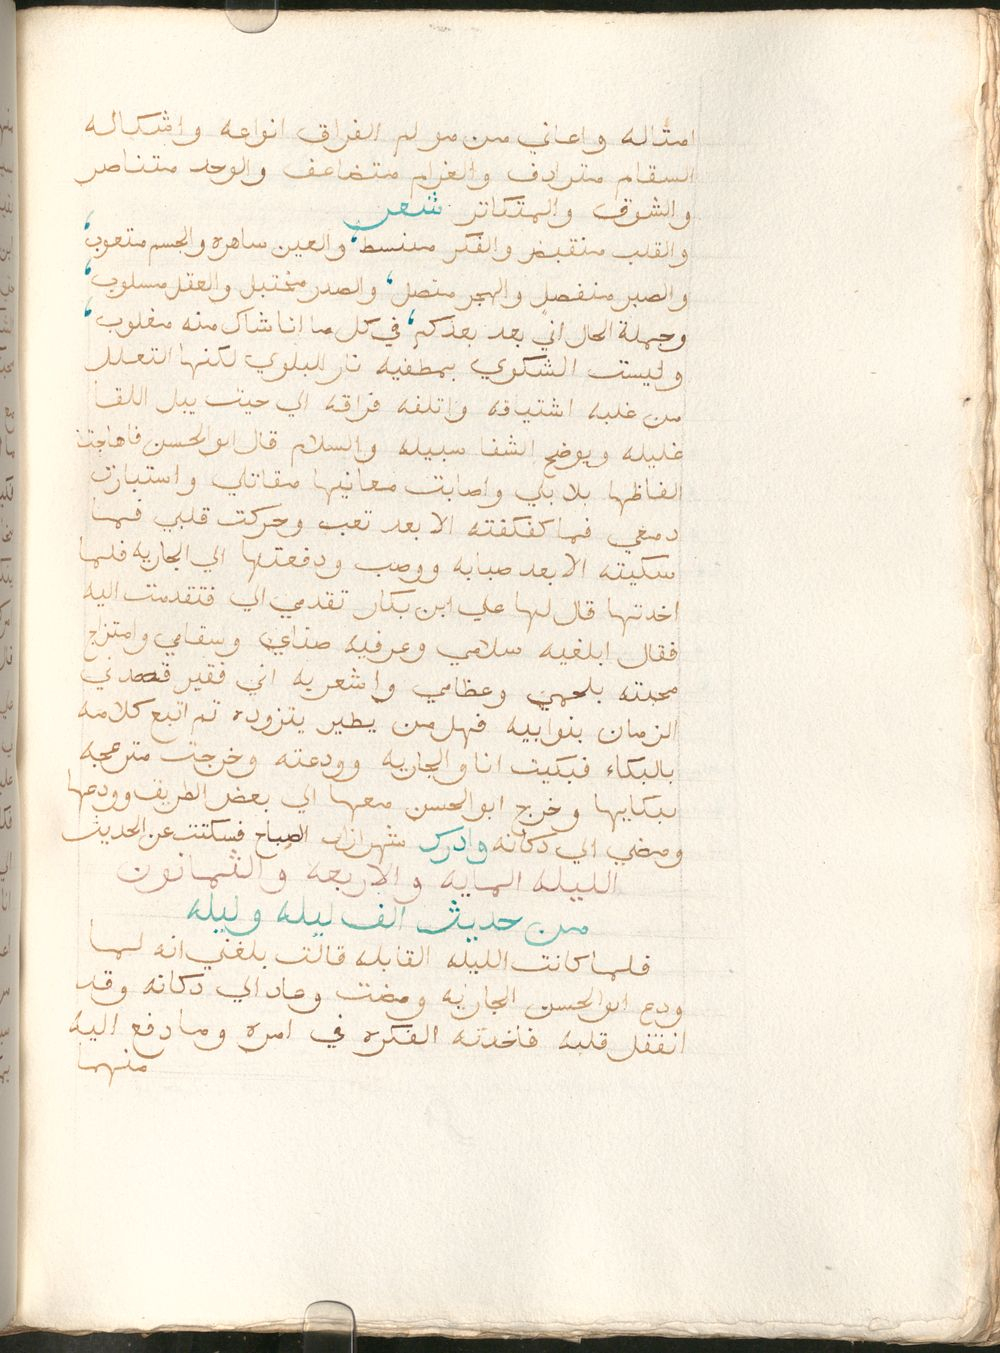 امثاله واعاني من مولم الفراق انواعه واشكاله
السقام مترادف والغرام متضاعف والوجد متناصر
والشوق والمتكاتر شعر
والقلب منقبض والفكر منبسط، والعين ساهره والجسم متعوب،
والصبر منفصل والهجر متصل، والصدر مختبل والعقل مسلوب،
وجملة الحال اني بعد بعدكم، في كل ما انا شاك منه مغلوب،
وليست الشكوي بمطفيه نار للبلوي لكنها التعلل
من غلبه اشتياقه واتلفه فراقه الي حيث يبل اللقا
غليله ويوضح الشفا سبيله والسلام قال ابو الحسن فاهاجت
الفاظها بلابلي واصابت معانيها مقاتلي واستبازت
دمعي فما كفكفته الا بعد تعب وحركت قلبي فما
سكيته الا بعد صبابه ووصب ودفعتها الي الجاريه فلما
اخدتها قال لها علي ابن بكار تقدمي الي فتقدمت اليه
فقال ابلغيه سلامي وعرفيه ضناي وسقامي وامتزاج
محبته بلحمي وعظامي واشعريه اني فقير قصدني
الزمان بنوابيه فهل من يطير يتزوده تم اتبع كلامه
بالبكاء فبكيت انا والجاريه وودعته وخرجت مترعجه
ببكايها وخرج ابو الحسن معها الي بعض الطريف وودعها
ومضي الي دكانه وادرك شهرازاد الصباح فسكتت عن الحديث
الليله المايه والاربعه والثمانون
من حديث الف ليله وليله
فلما كانت الليله القابله قالت بلغني انه لما
ودع ابو الحسن الجاريه ومضت وعاد الي دكانه وقد
انقفل قلبه فاخدته الفكره في امره وما دفع اليه
منهما